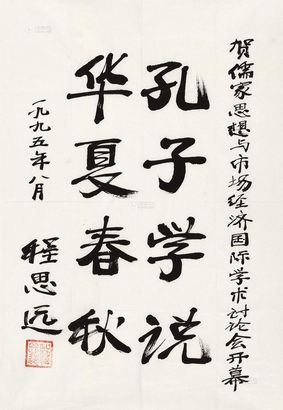 贺儒家思想与市场经济国际学术讨论会开幕
孔子学说
华夏春秋
一九九五年八月
程思远